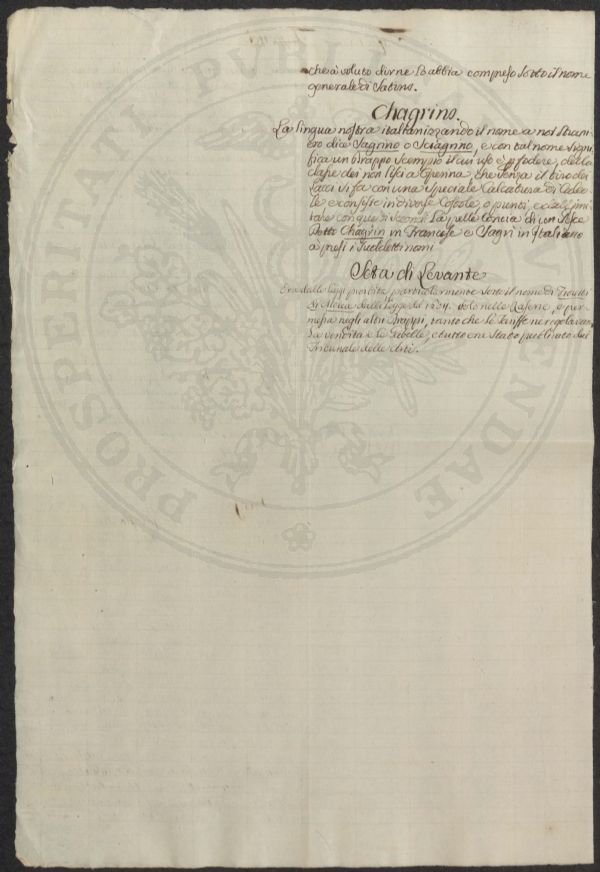 che à voluto dirne l'abbia compreso sotto il nome
generale di Satins.
Chagrins.
La lingua nostra italianizzando il nome a noi strani-
ero dice Sagrino o Sciagrino, e con tal nome signi-
fica un drappo scempio il cui uso è p fodere, della
classe dei non lisci a Spenna, che senza il tiro dei
Lacci si fa con una speciale Calcatura di Calco-
le e consiste in diverse Costole, o punti, e
con que La pelle Concia di un
Detto Chagrin in Francese e Sagrì in Italiano
à presi i Suddetti nomi
Seta di Levante
Era dalle leggi proibita particolarmente sotto il nome di
di Morea dalla legge del solo nelle Rasone, e per-
messa negli altri Drappi, tanto che le Tariffe ne regolavan
La vendita e le Gabelle, e tutto era stato pubblicato dal
Tribunale delle Arti.
PROSPERITATI PUBLICAE AUGENDAE